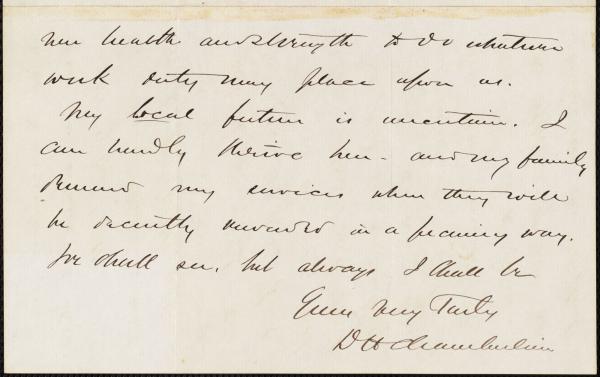 new health and strength to do whatever
work duty may place upon us.
My local future is uncertain. I
can hardly thrive here - and my family
demand my services when they will
be decently rewarded in a pecuniary way.
We shall see, but always I shall be
Yours Very Truly
D H Chamberlain